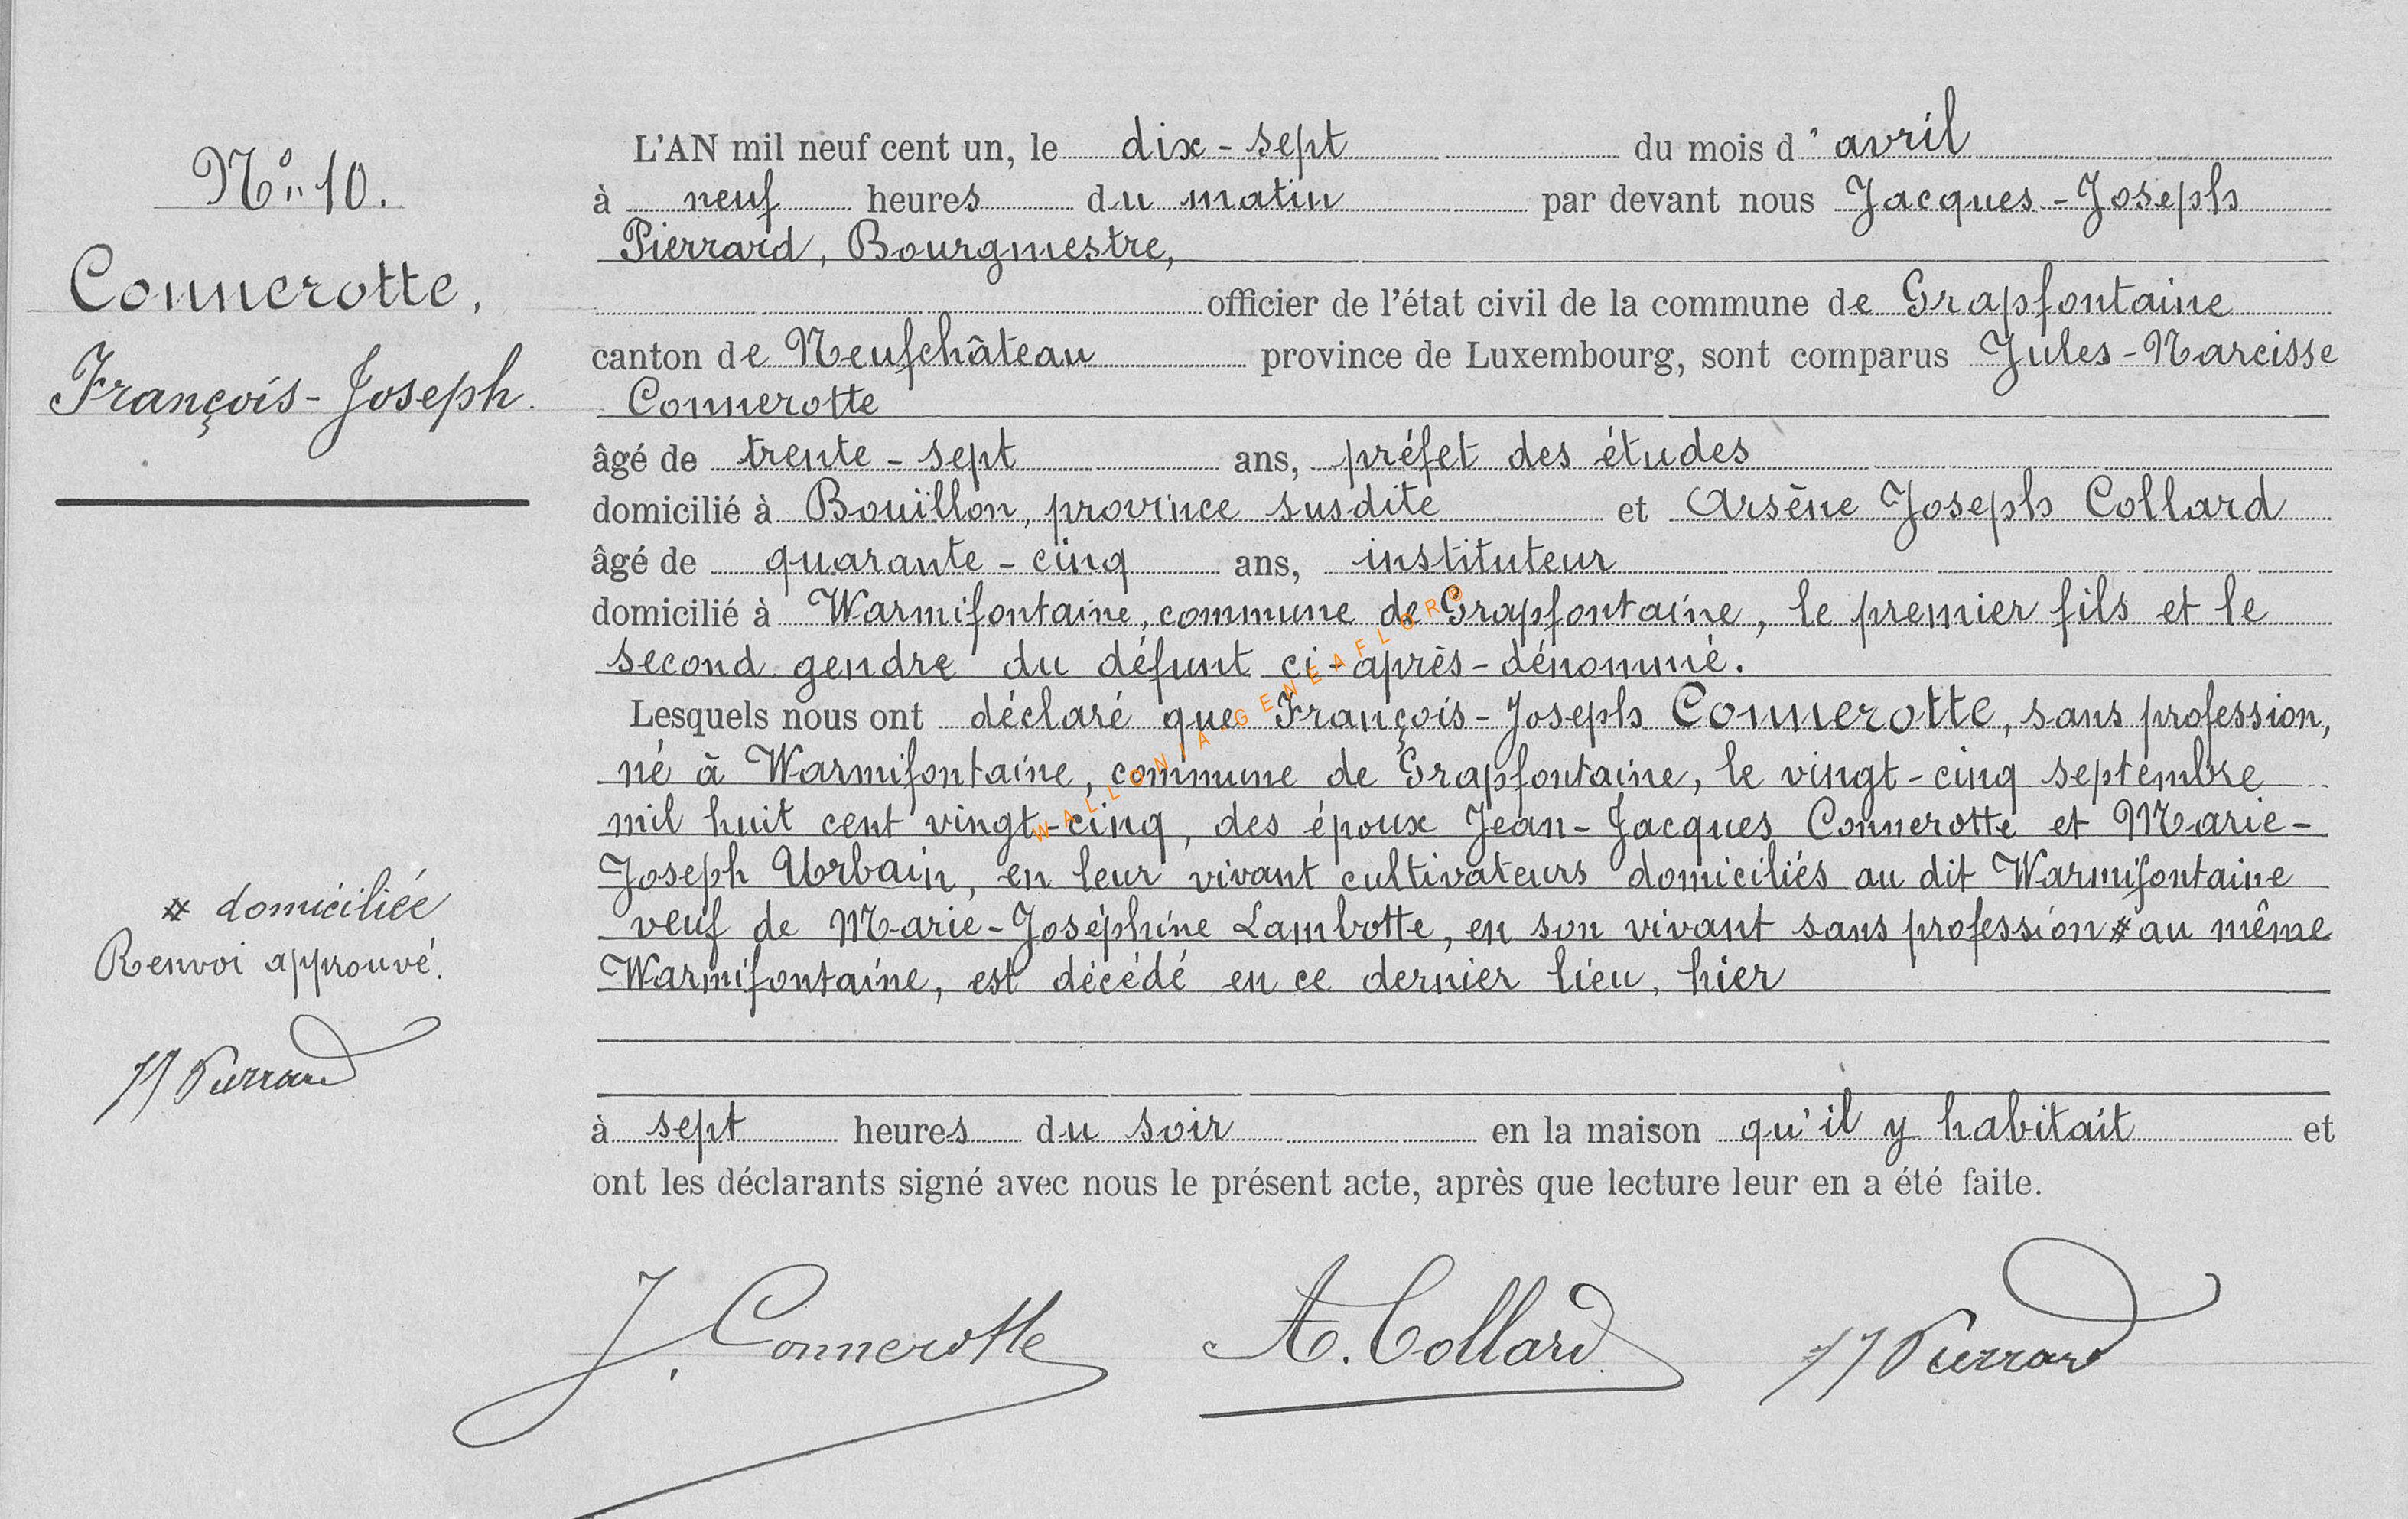 N° 10.
Connerotte,
François-Joseph.
L'AN mil neuf cent un, le dix-sept du mois d'avril
à neuf heures du matin par devant nous Jacques-Joseph
Pierrard, Bourgmestre,
officier de l'état civil de la commune de Grapfontaine
canton de Neufchâteau province de Luxembourg, sont comparus Jules-Narcisse
Connerotte
âgé de trente-sept ans, préfet des études
domicilié à Bouillon, province susdite et Arsène Joseph Collard
âgé de quarante-cinq ans, instituteur
domicilié à Warmifontaine, commune de Grapfontaine, le premier fils et le
second gendre du défunt ci-après-dénommé.
Lesquels nous ont déclaré que François-Joseph Connerotte, sans profession,
né à Warmifontaine, commune de Grapfontaine, le vingt-cinq septembre
mil huit cent vingt-cinq, des époux Jean-Jacques Connerotte et Marie-
Joseph Urbain, en leur vivant cultivateurs domiciliés au dit Warmifontaine
veuf de Marie-Joséphine Lambotte, en son vivant sans profession # au même
Warmifontaine, est décédé en ce dernier lieu, hier
à sept heures du soir en la maison qu'il y habitait et
ont les déclarants signé avec nous le présent acte, après que lecture leur en a été faite.
# domiciliée
Renvoi approuvé.
JJ Pierrard
J. Connerotte A. Collard JJ Pierrard
WALLONIA-GENEAFLORE